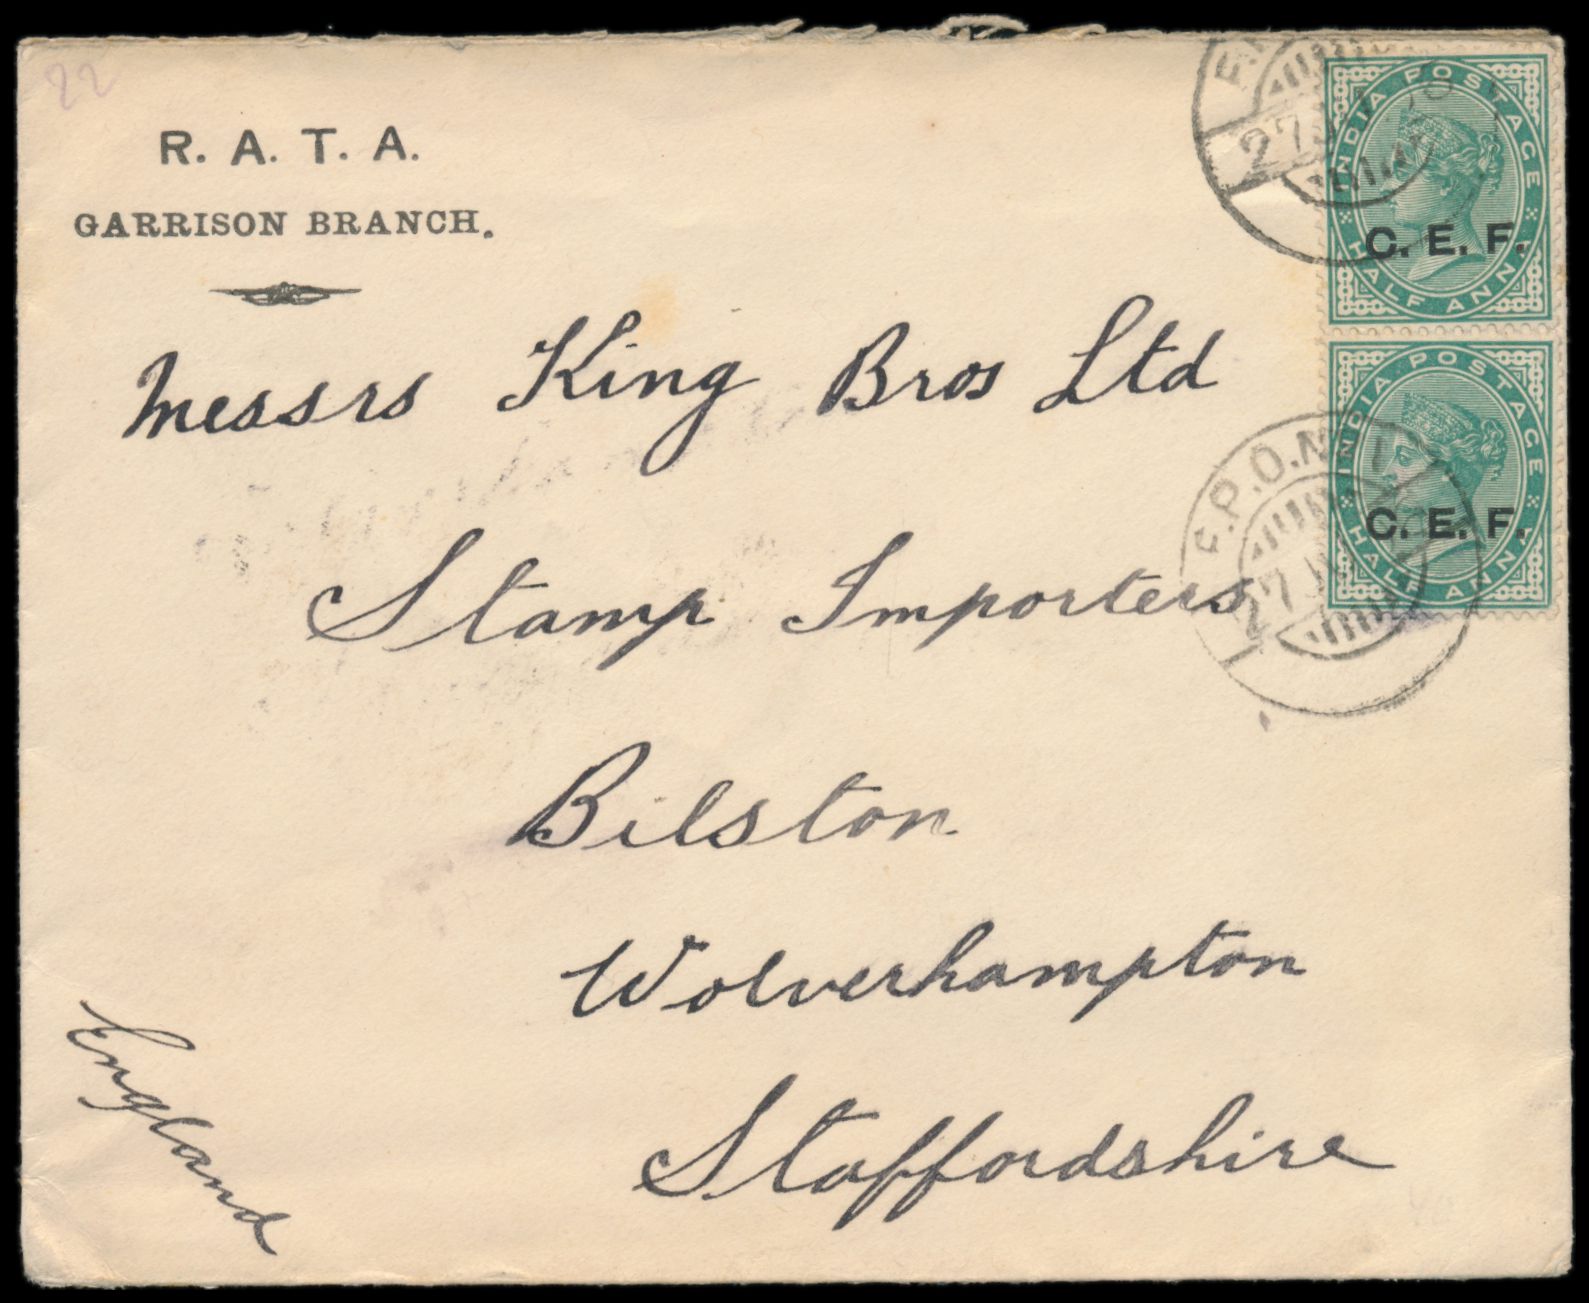 22
R. A. T. A.
GARRISON BRANCH.
INDIA POSTAGE
C. E. F.
HALF ANNA
Messrs King Bros Ltd
INDIA POSTAGE
C. E. F.
HALF ANNA
F.P.O. No 1
27
27
Stamp Importers
Bilston
Wolverhampton
Staffordshire
England